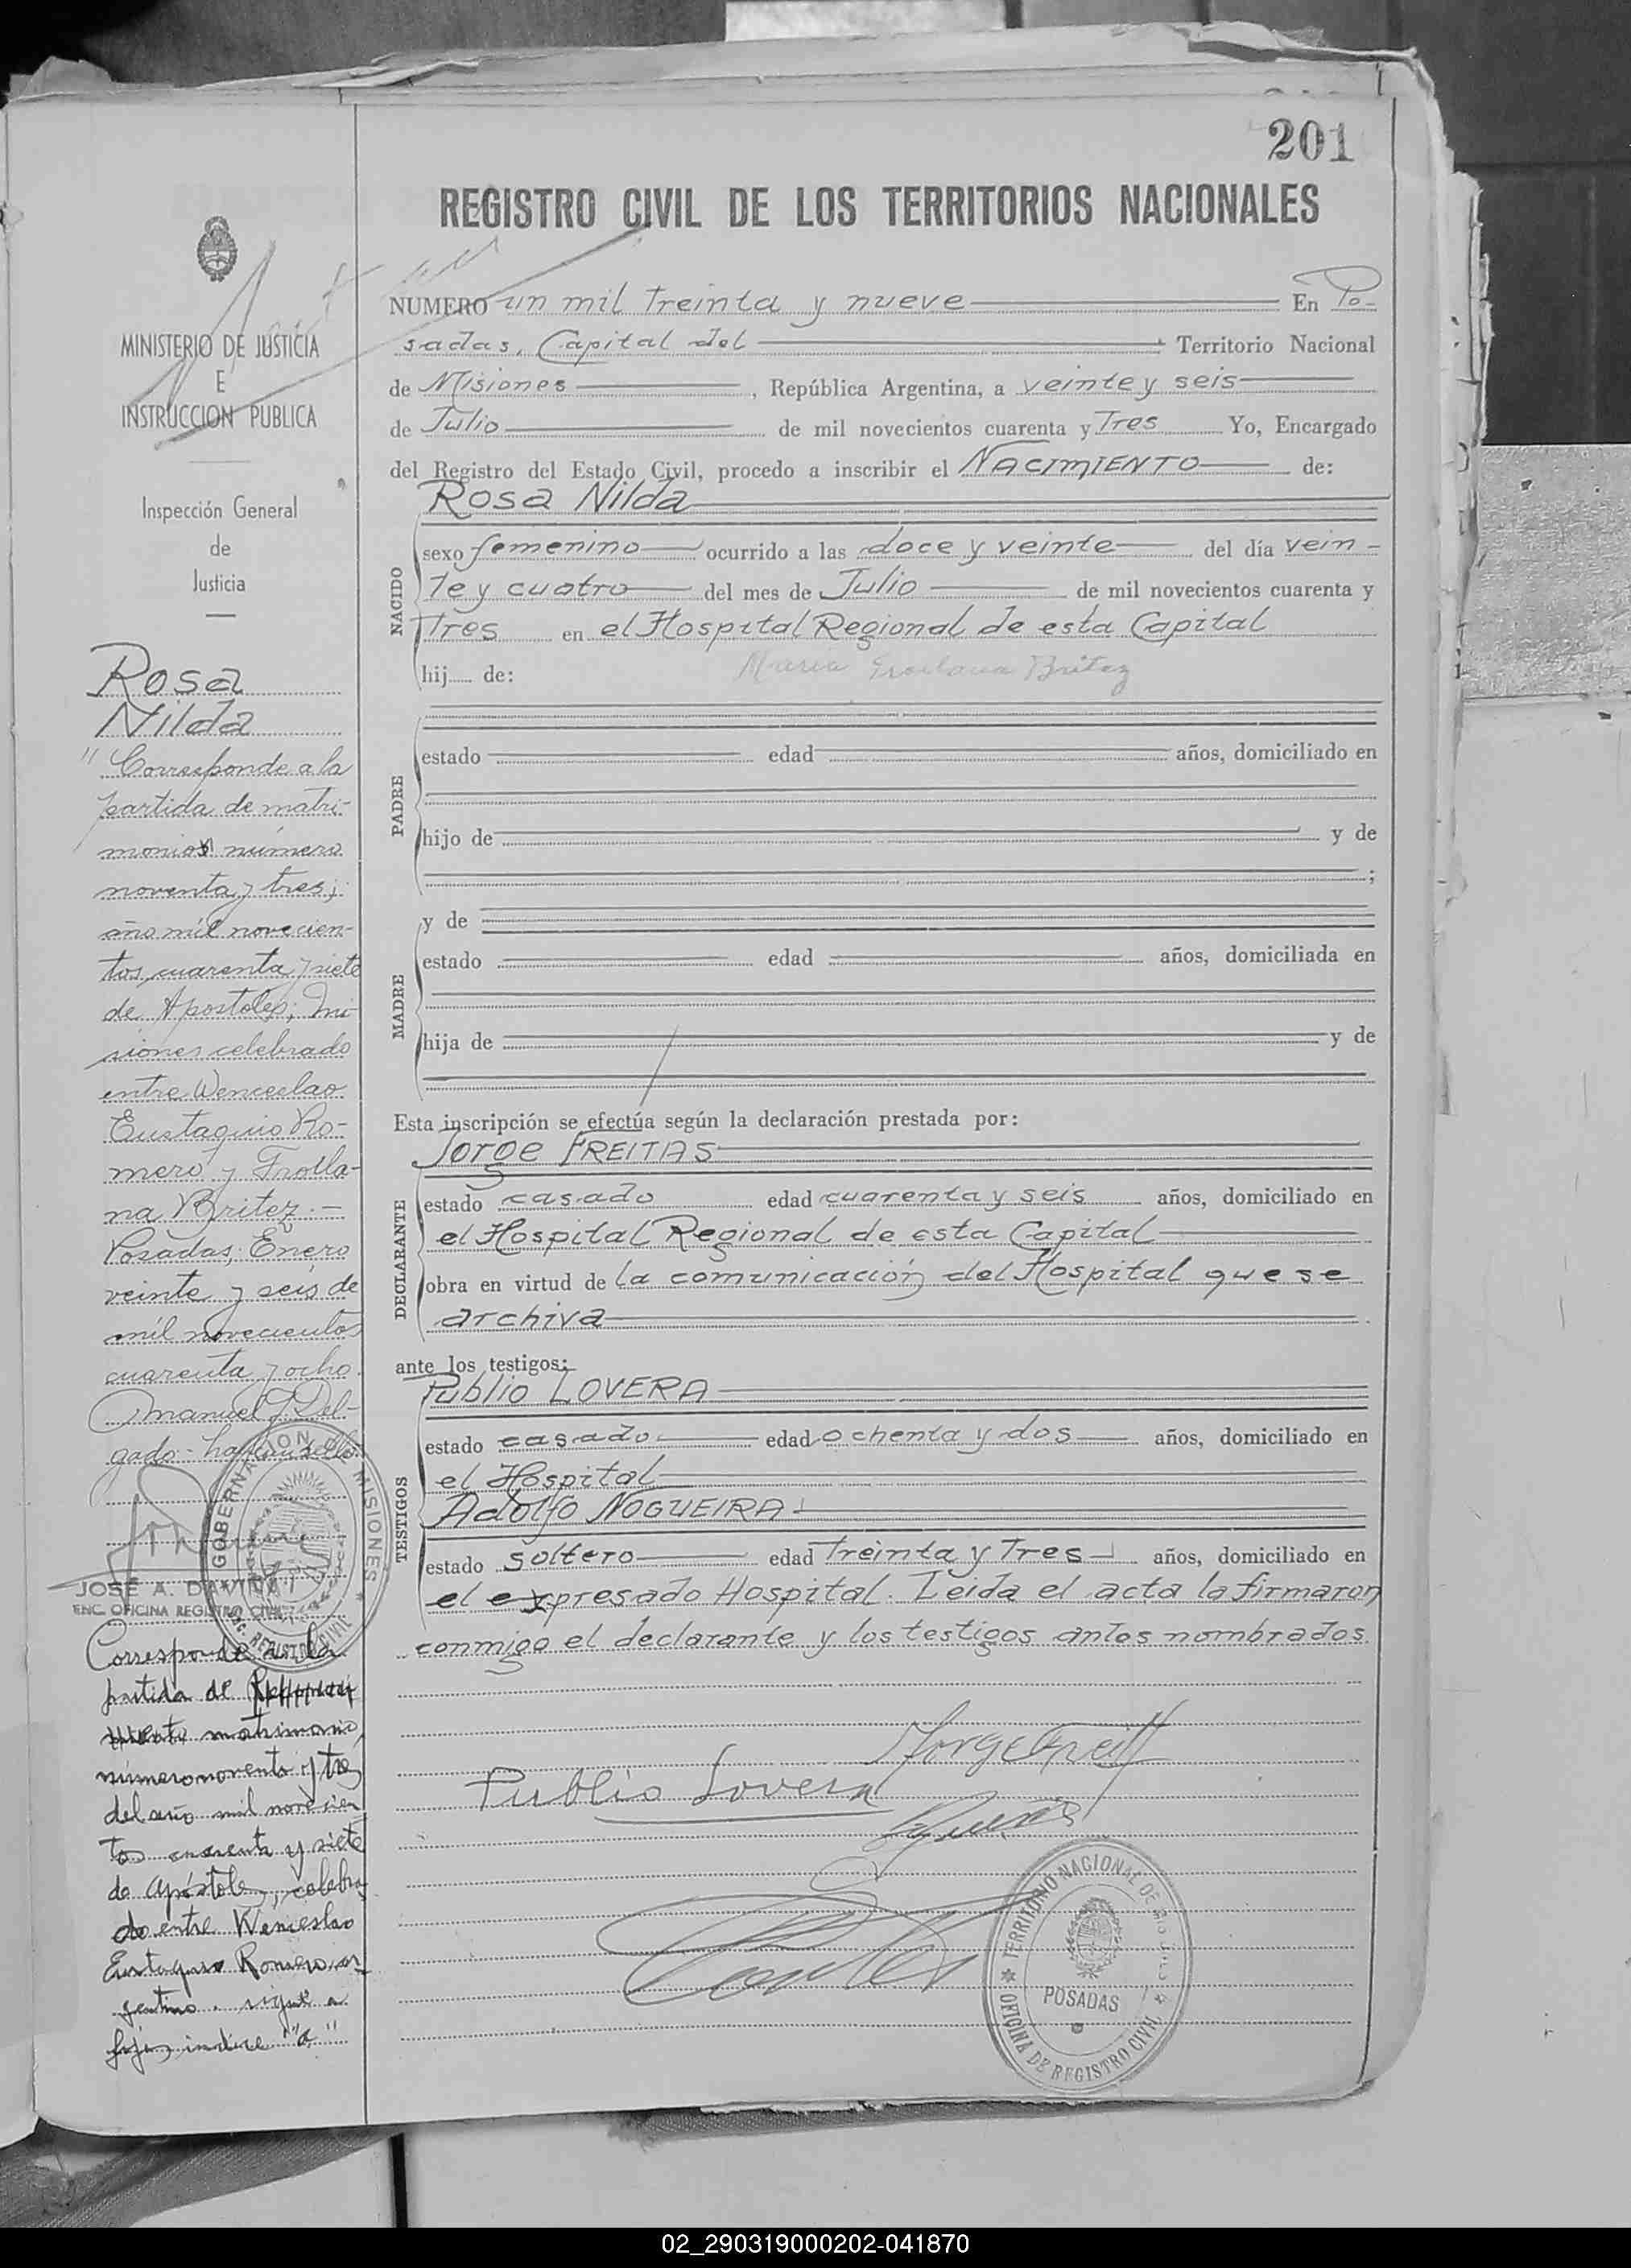 201
REGISTRO CIVIL DE LOS TERRITORIOS NACIONALES
MINISTERIO DE JUSTICIA
E
INSTRUCCION PUBLICA
Inspección General
de
Justicia
Rosa
Nilda
"Corresponde a la
partida de matri-
monios número
noventa y tres;
año mil novecien-
tos cuarenta y siete
de Apostoles; Mi-
siones celebrado
entre Wenceslao
Eustaquio Ro-
mero y Froila-
na Britez.-
Posadas, Enero
veinte y seis de
mil novecientos
cuarenta y ocho.
Manuel J. Del-
gado.- hay un sello
GOBERNACION MISIONES
REGISTRO CIVIL
JOSÉ A.
ENC. OFICINA REGISTRO CIVIL
Corresponde a la
partida de
matrimonio,
número noventa y tres
del año mil novecien
tos cuarenta y siete
de Apóstoles, celebra
do entre Wenceslao
Eustaquio Romero, ar-
gentino. sigue a
fojas indice "a"
NUMERO un mil treinta y nueve En Po-
sadas, Capital del Territorio Nacional
de Misiones, República Argentina, a veinte y seis
de Julio de mil novecientos cuarenta y Tres Yo, Encargado
del Registro del Estado Civil, procedo a inscribir el NACIMIENTO de:
Rosa Nilda
NACIDO
sexo femenino ocurrido a las doce y veinte del día vein-
te y cuatro del mes de Julio de mil novecientos cuarenta y
Tres en el Hospital Regional de esta Capital
hij de: Maria Froilana Britez
PADRE
estado edad años, domiciliado en
hijo de y de
;
MADRE
y de
estado edad años, domiciliada en
hija de y de
Esta inscripción se efectúa según la declaración prestada por:
Jorge FREITAS
DECLARANTE
estado casado edad cuarenta y seis años, domiciliado en
el Hospital Regional de esta Capital
obra en virtud de la comunicación del Hospital que se
archiva
ante los testigos:
Publio LOVERA
TESTIGOS
estado casado edad ochenta y dos años, domiciliado en
el Hospital
Adolfo NOGUEIRA
estado soltero edad treinta y Tres años, domiciliado en
el expresado Hospital. Leida el acta la firmaron
conmigo el declarante y los testigos antes nombrados.
Jorge Freitas
Publio Lovera
TERRITORIO NACIONAL DE MISIONES
POSADAS
OFICINA DE REGISTRO CIVIL
02_290319000202-041870